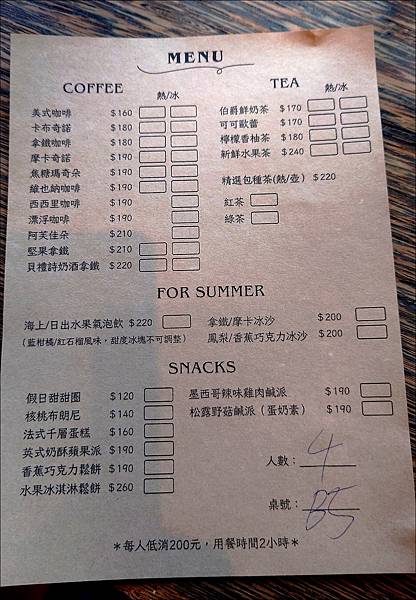 MENU
COFFEE
熱/冰
美式咖啡 $160
卡布奇諾 $180
拿鐵咖啡 $180
摩卡奇諾 $190
焦糖瑪奇朵 $190
維也納咖啡 $190
西西里咖啡 $190
漂浮咖啡 $190
阿芙佳朵 $210
堅果拿鐵 $210
貝禮詩奶酒拿鐵 $220
TEA
熱/冰
伯爵鮮奶茶 $170
可可歐蕾 $170
檸檬香柚茶 $180
新鮮水果茶 $240
精選包種茶(熱/壺) $220
紅茶
綠茶
FOR SUMMER
海上/日出水果氣泡飲 $220
(藍柑橘/紅石榴風味，甜度冰塊不可調整)
拿鐵/摩卡冰沙 $200
鳳梨/香蕉巧克力冰沙 $200
SNACKS
假日甜甜圈 $120
核桃布朗尼 $140
法式千層蛋糕 $160
英式奶酥蘋果派 $190
香蕉巧克力鬆餅 $190
水果冰淇淋鬆餅 $260
墨西哥辣味雞肉鹹派 $190
松露野菇鹹派（蛋奶素） $190
人數：4
桌號：B5
＊每人低消200元，用餐時間2小時＊